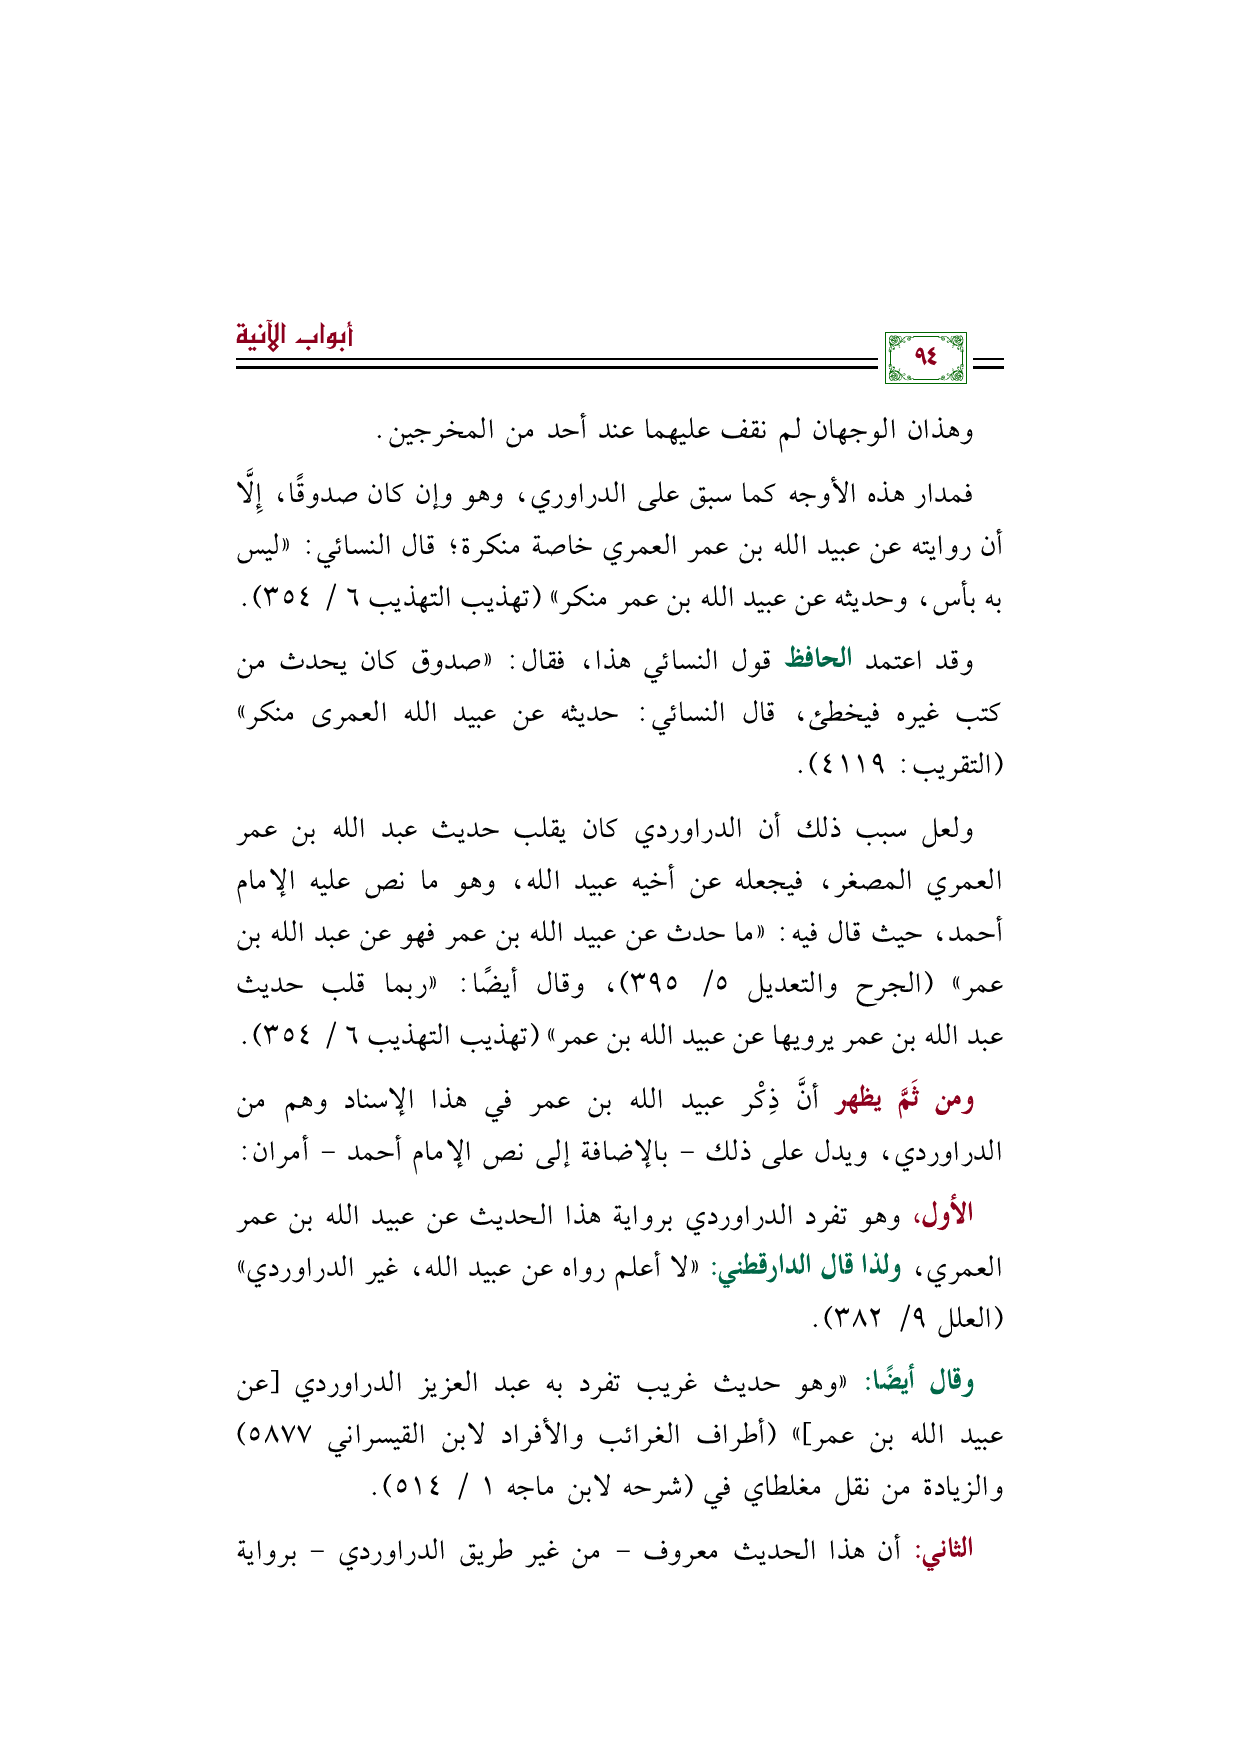 أبواب الآنية
٩٤
وهذان الوجهان لم نقف عليهما عند أحد من المخرجين.
فمدار هذه الأوجه كما سبق على الدراوري، وهو وإن كان صدوقًا، إِلَّا
أن روايته عن عبيد الله بن عمر العمري خاصة منكرة؛ قال النسائي: «ليس
به بأس، وحديثه عن عبيد الله بن عمر منكر» (تهذيب التهذيب ٦ / ٣٥٤).
وقد اعتمد الحافظ قول النسائي هذا، فقال: «صدوق كان يحدث من
كتب غيره فيخطئ، قال النسائي: حديثه عن عبيد الله العمرى منكر»
(التقريب: ٤١١٩).
ولعل سبب ذلك أن الدراوردي كان يقلب حديث عبد الله بن عمر
العمري المصغر، فيجعله عن أخيه عبيد الله، وهو ما نص عليه الإمام
أحمد، حيث قال فيه: «ما حدث عن عبيد الله بن عمر فهو عن عبد الله بن
عمر» (الجرح والتعديل ٥/ ٣٩٥)، وقال أيضًا: «ربما قلب حديث
عبد الله بن عمر يرويها عن عبيد الله بن عمر» (تهذيب التهذيب ٦ / ٣٥٤).
ومن ثَمَّ يظهر أنَّ ذِكْر عبيد الله بن عمر في هذا الإسناد وهم من
الدراوردي، ويدل على ذلك – بالإضافة إلى نص الإمام أحمد – أمران:
الأول، وهو تفرد الدراوردي برواية هذا الحديث عن عبيد الله بن عمر
العمري، ولذا قال الدارقطني: «لا أعلم رواه عن عبيد الله، غير الدراوردي»
(العلل ٩/ ٣٨٢).
وقال أيضًا: «وهو حديث غريب تفرد به عبد العزيز الدراوردي [عن
عبيد الله بن عمر]» (أطراف الغرائب والأفراد لابن القيسراني ٥٨٧٧)
والزيادة من نقل مغلطاي في (شرحه لابن ماجه ١ / ٥١٤).
الثاني: أن هذا الحديث معروف – من غير طريق الدراوردي – برواية